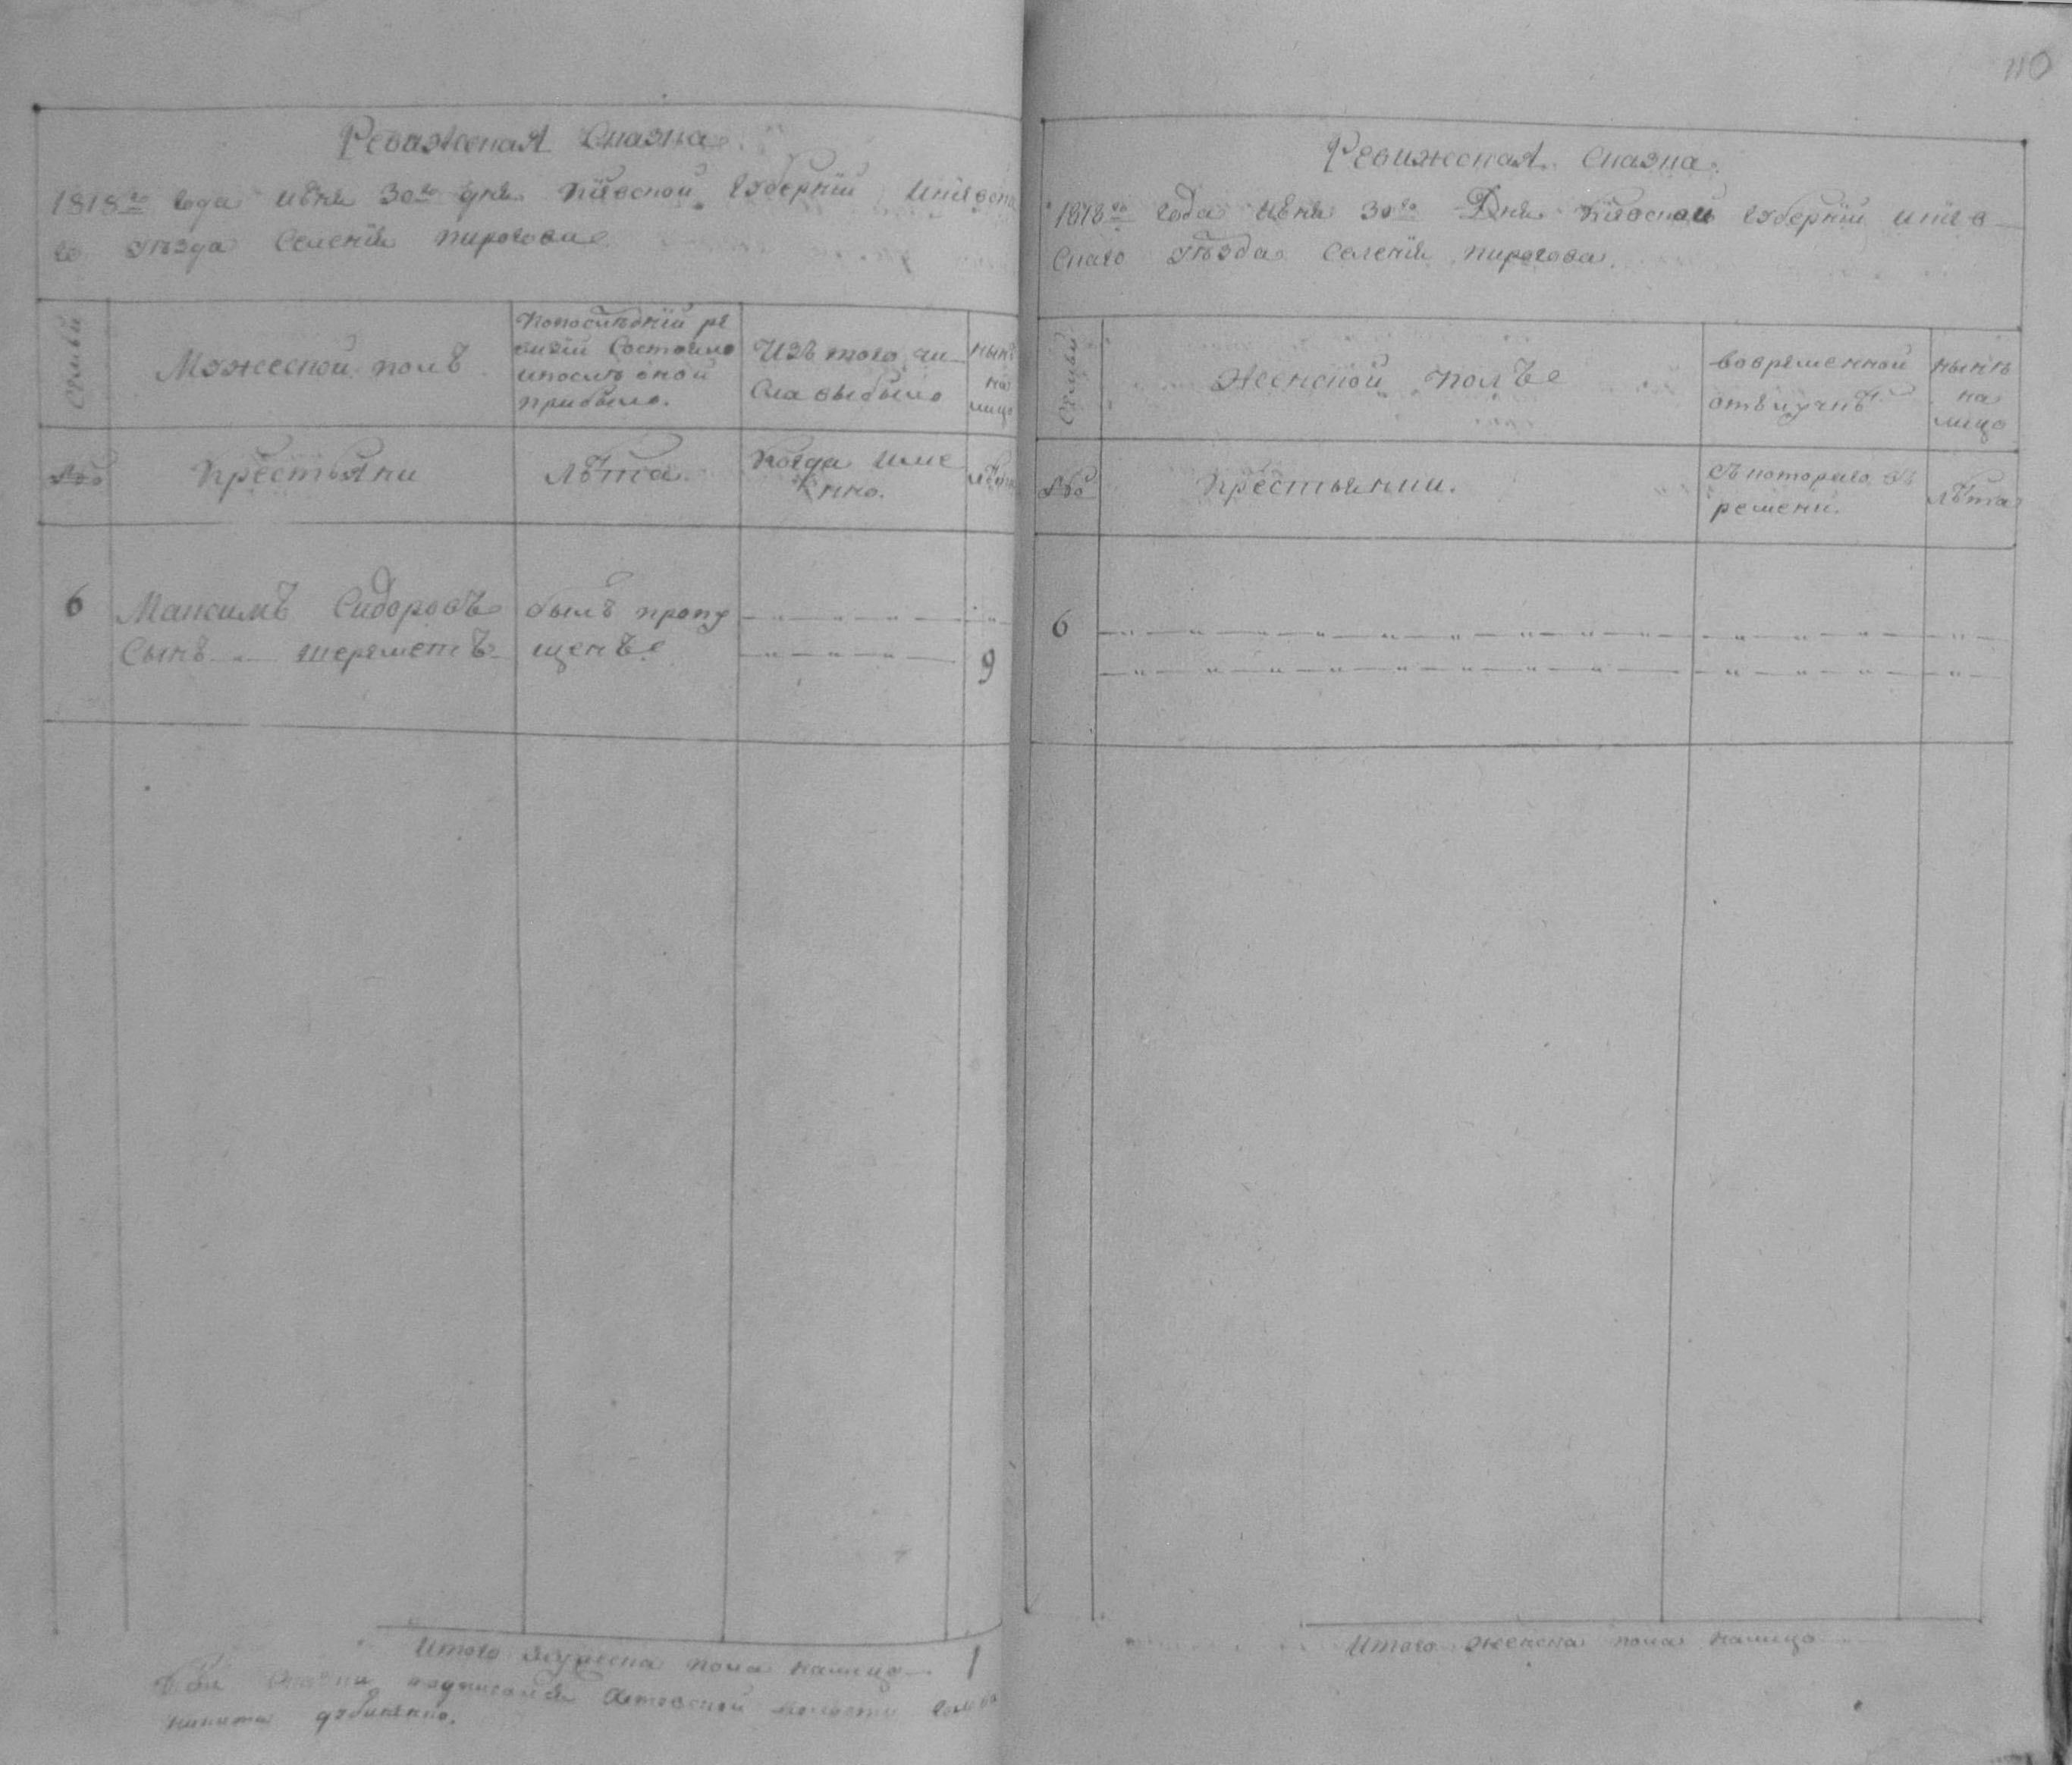 110
Ревижская Сказка
1818го года июня 30го дня Кіевской губерніи Кіевска
го уѣзда Селенія Пирогова
Семьи
Мужеской полъ
Попослѣдній ре
визіи состояло
ипослѣ оной
прибыло.
Изъ того чи
сла выбыло
нынѣ
на
лицо
№
Крестьяни
Лѣта
Когда име
нно.
лѣта
6 Максимъ Сидоровъ былъ пропу
Сынъ Шереметъ щенъ 9
Итого мужеска пола налицо 1
подписался волости голова
Никита
Ревижская Сказка
1818го года июня 30го Дня Кіевской губерніи Кіев
Скаго уѣзда Селенія Пирогова.
Семьи
Женской полъ
вовременной
отлучкѣ
нынѣ
на
лицо
№
Крестьянки.
Съ котораго в
ремени.
лѣта
6
Итого женска пола налицо